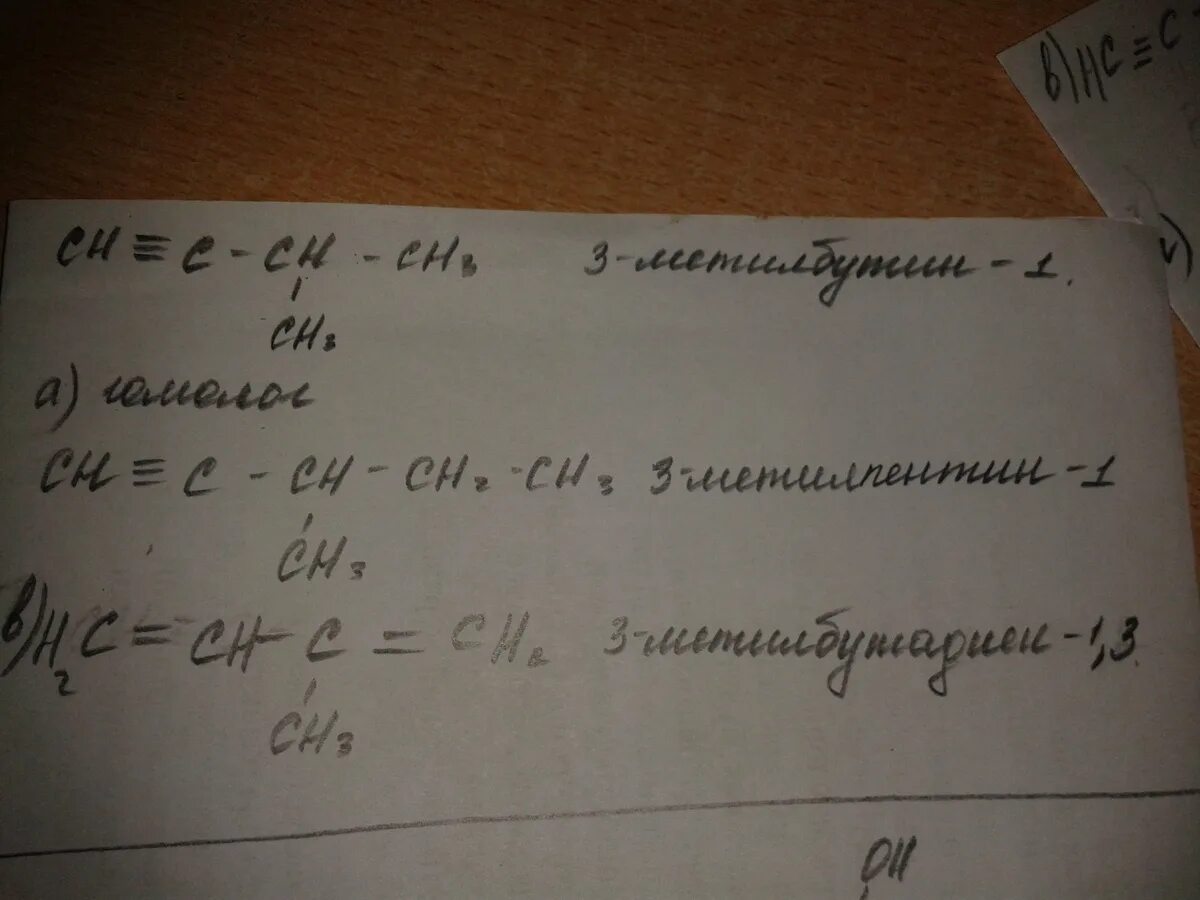 в) HC ≡ C
CH ≡ C - CH - CH₃ 3-метилбутин - 1.
CH₃
а) гомолог
CH ≡ C - CH - CH₂ - CH₃ 3-метилпентин - 1
CH₃
в) H₂C = CH - C = CH₂ 3-метилбутадиен - 1,3
CH₃
OH